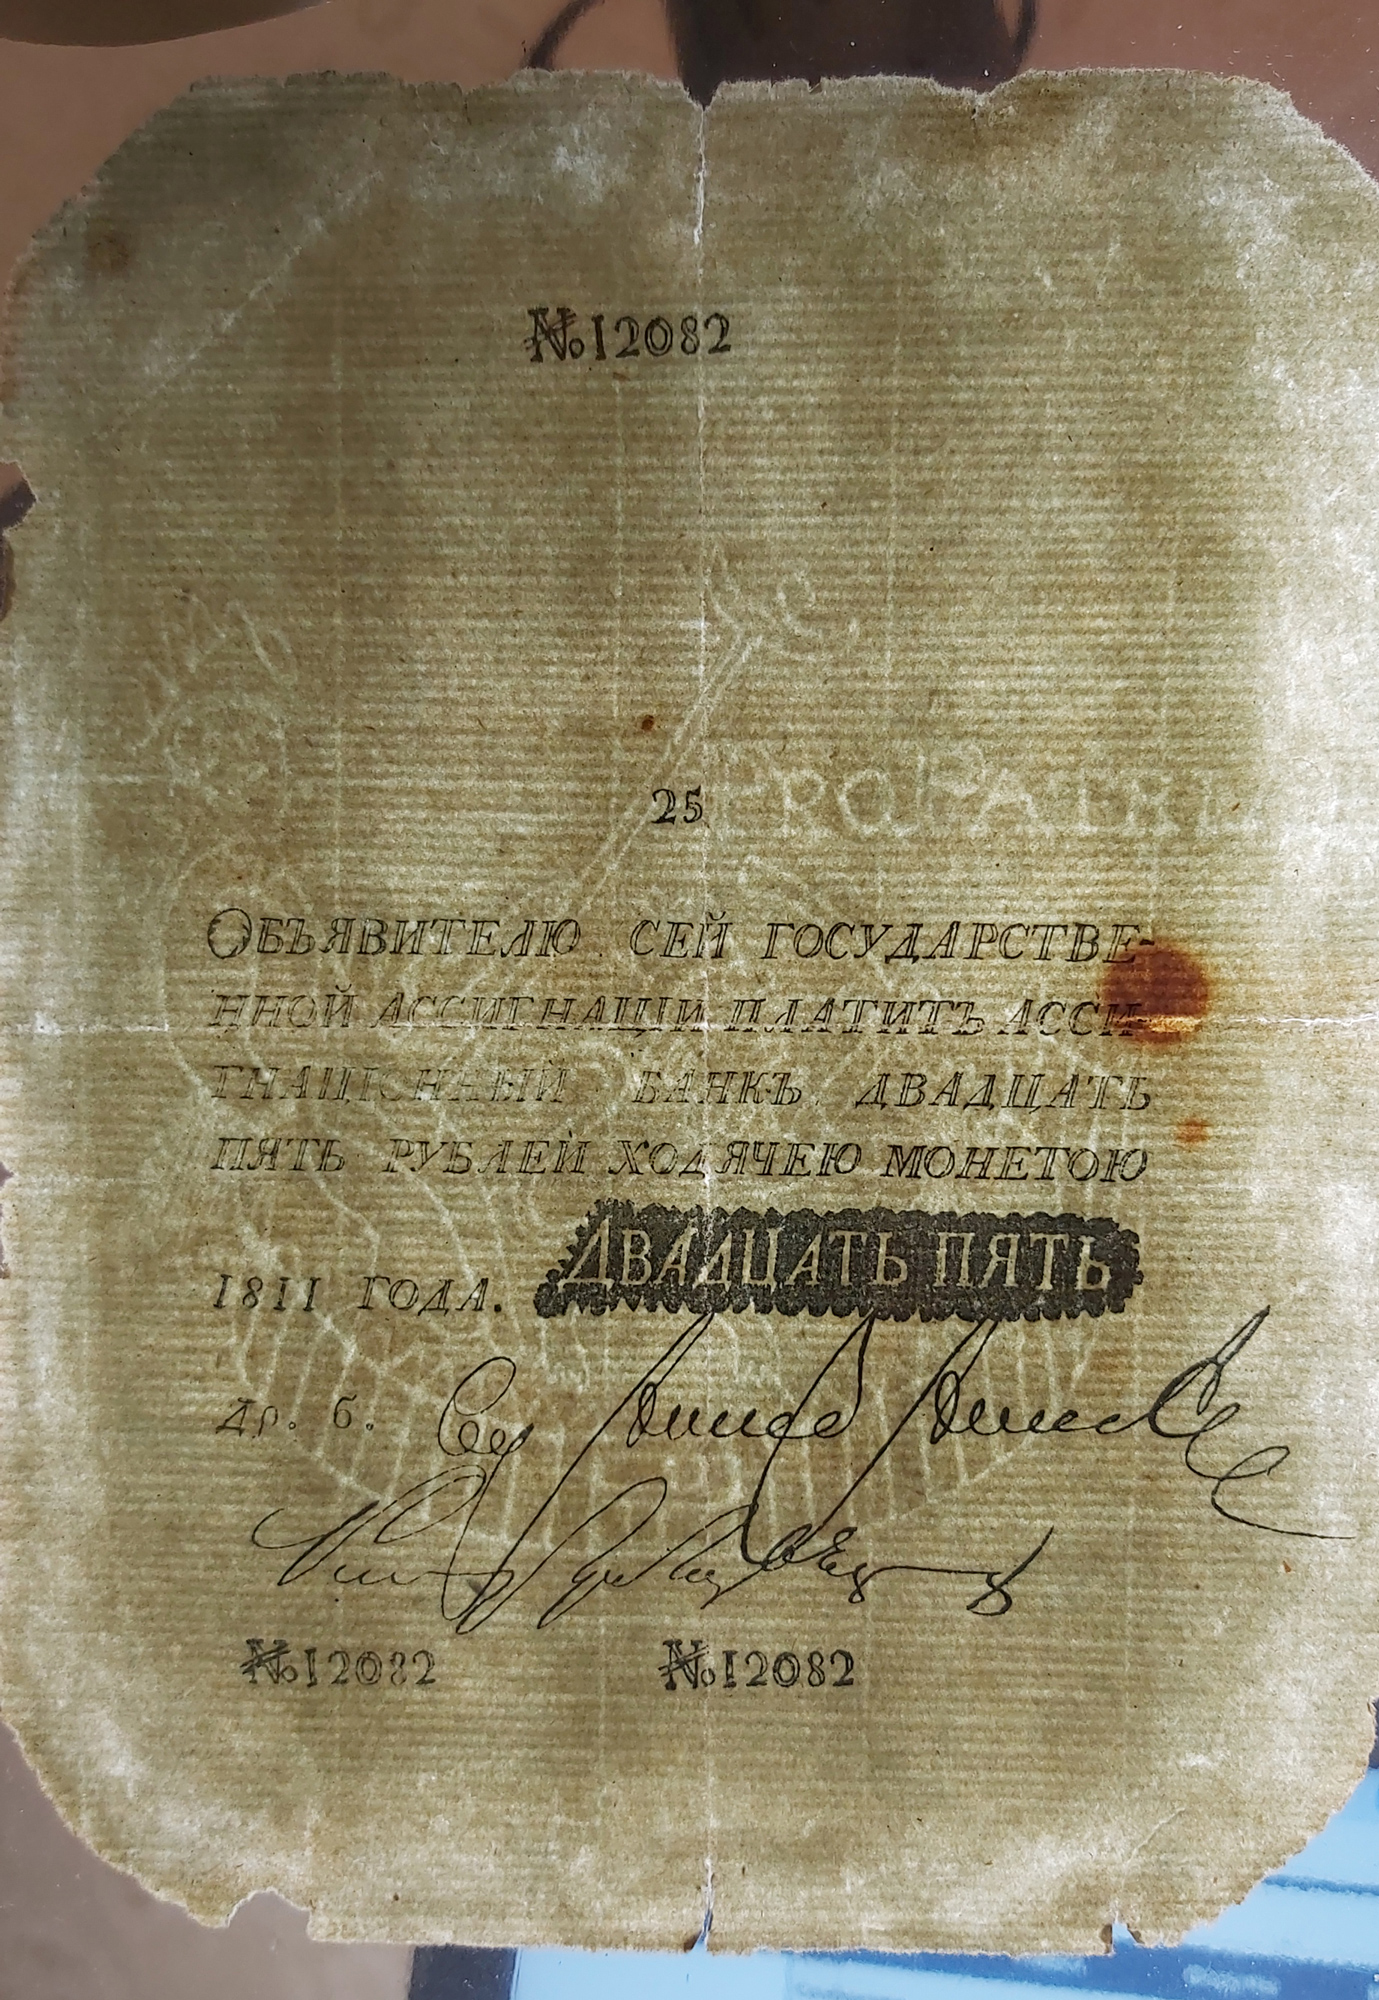 № 12082
PRO PATRIA
25
ОБЪЯВИТЕЛЮ СЕЙ ГОСУДАРСТВЕ-
ННОЙ АССИГНАЦІИ ПЛАТИТЪ АССИ-
ГНАЦІОННЫЙ БАНКЪ ДВАДЦАТЬ
ПЯТЬ РУБЛЕЙ ХОДЯЧЕЮ МОНЕТОЮ
1811 ГОДА. ДВАДЦАТЬ ПЯТЬ
№ 12082 № 12082